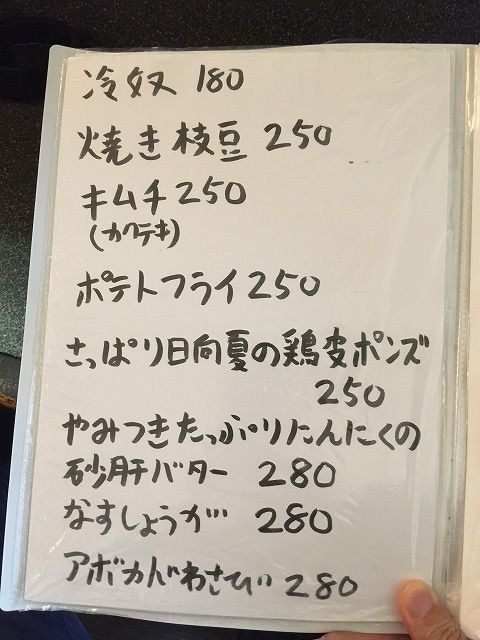 冷奴 180
焼き枝豆 250
キムチ 250
(カクテキ)
ポテトフライ 250
さっぱり日向夏の鶏皮ポンズ
250
やみつきたっぷりにんにくの
砂肝バター 280
なすしょうが 280
アボカドわさび 280